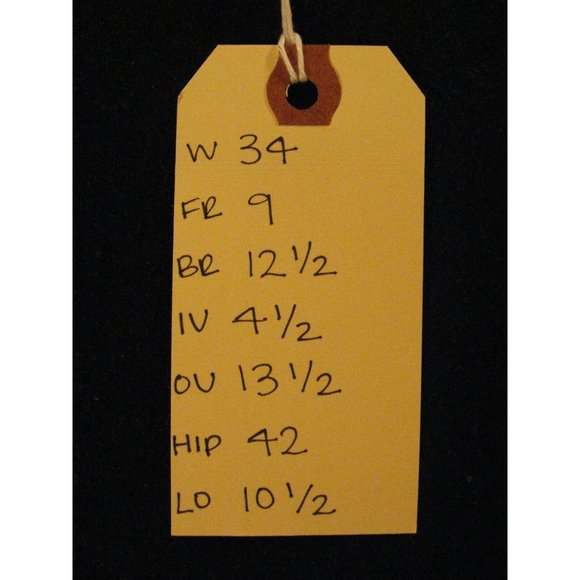 W 34
FR 9
BR 12 1/2
IV 4 1/2
OV 13 1/2
HIP 42
LO 10 1/2